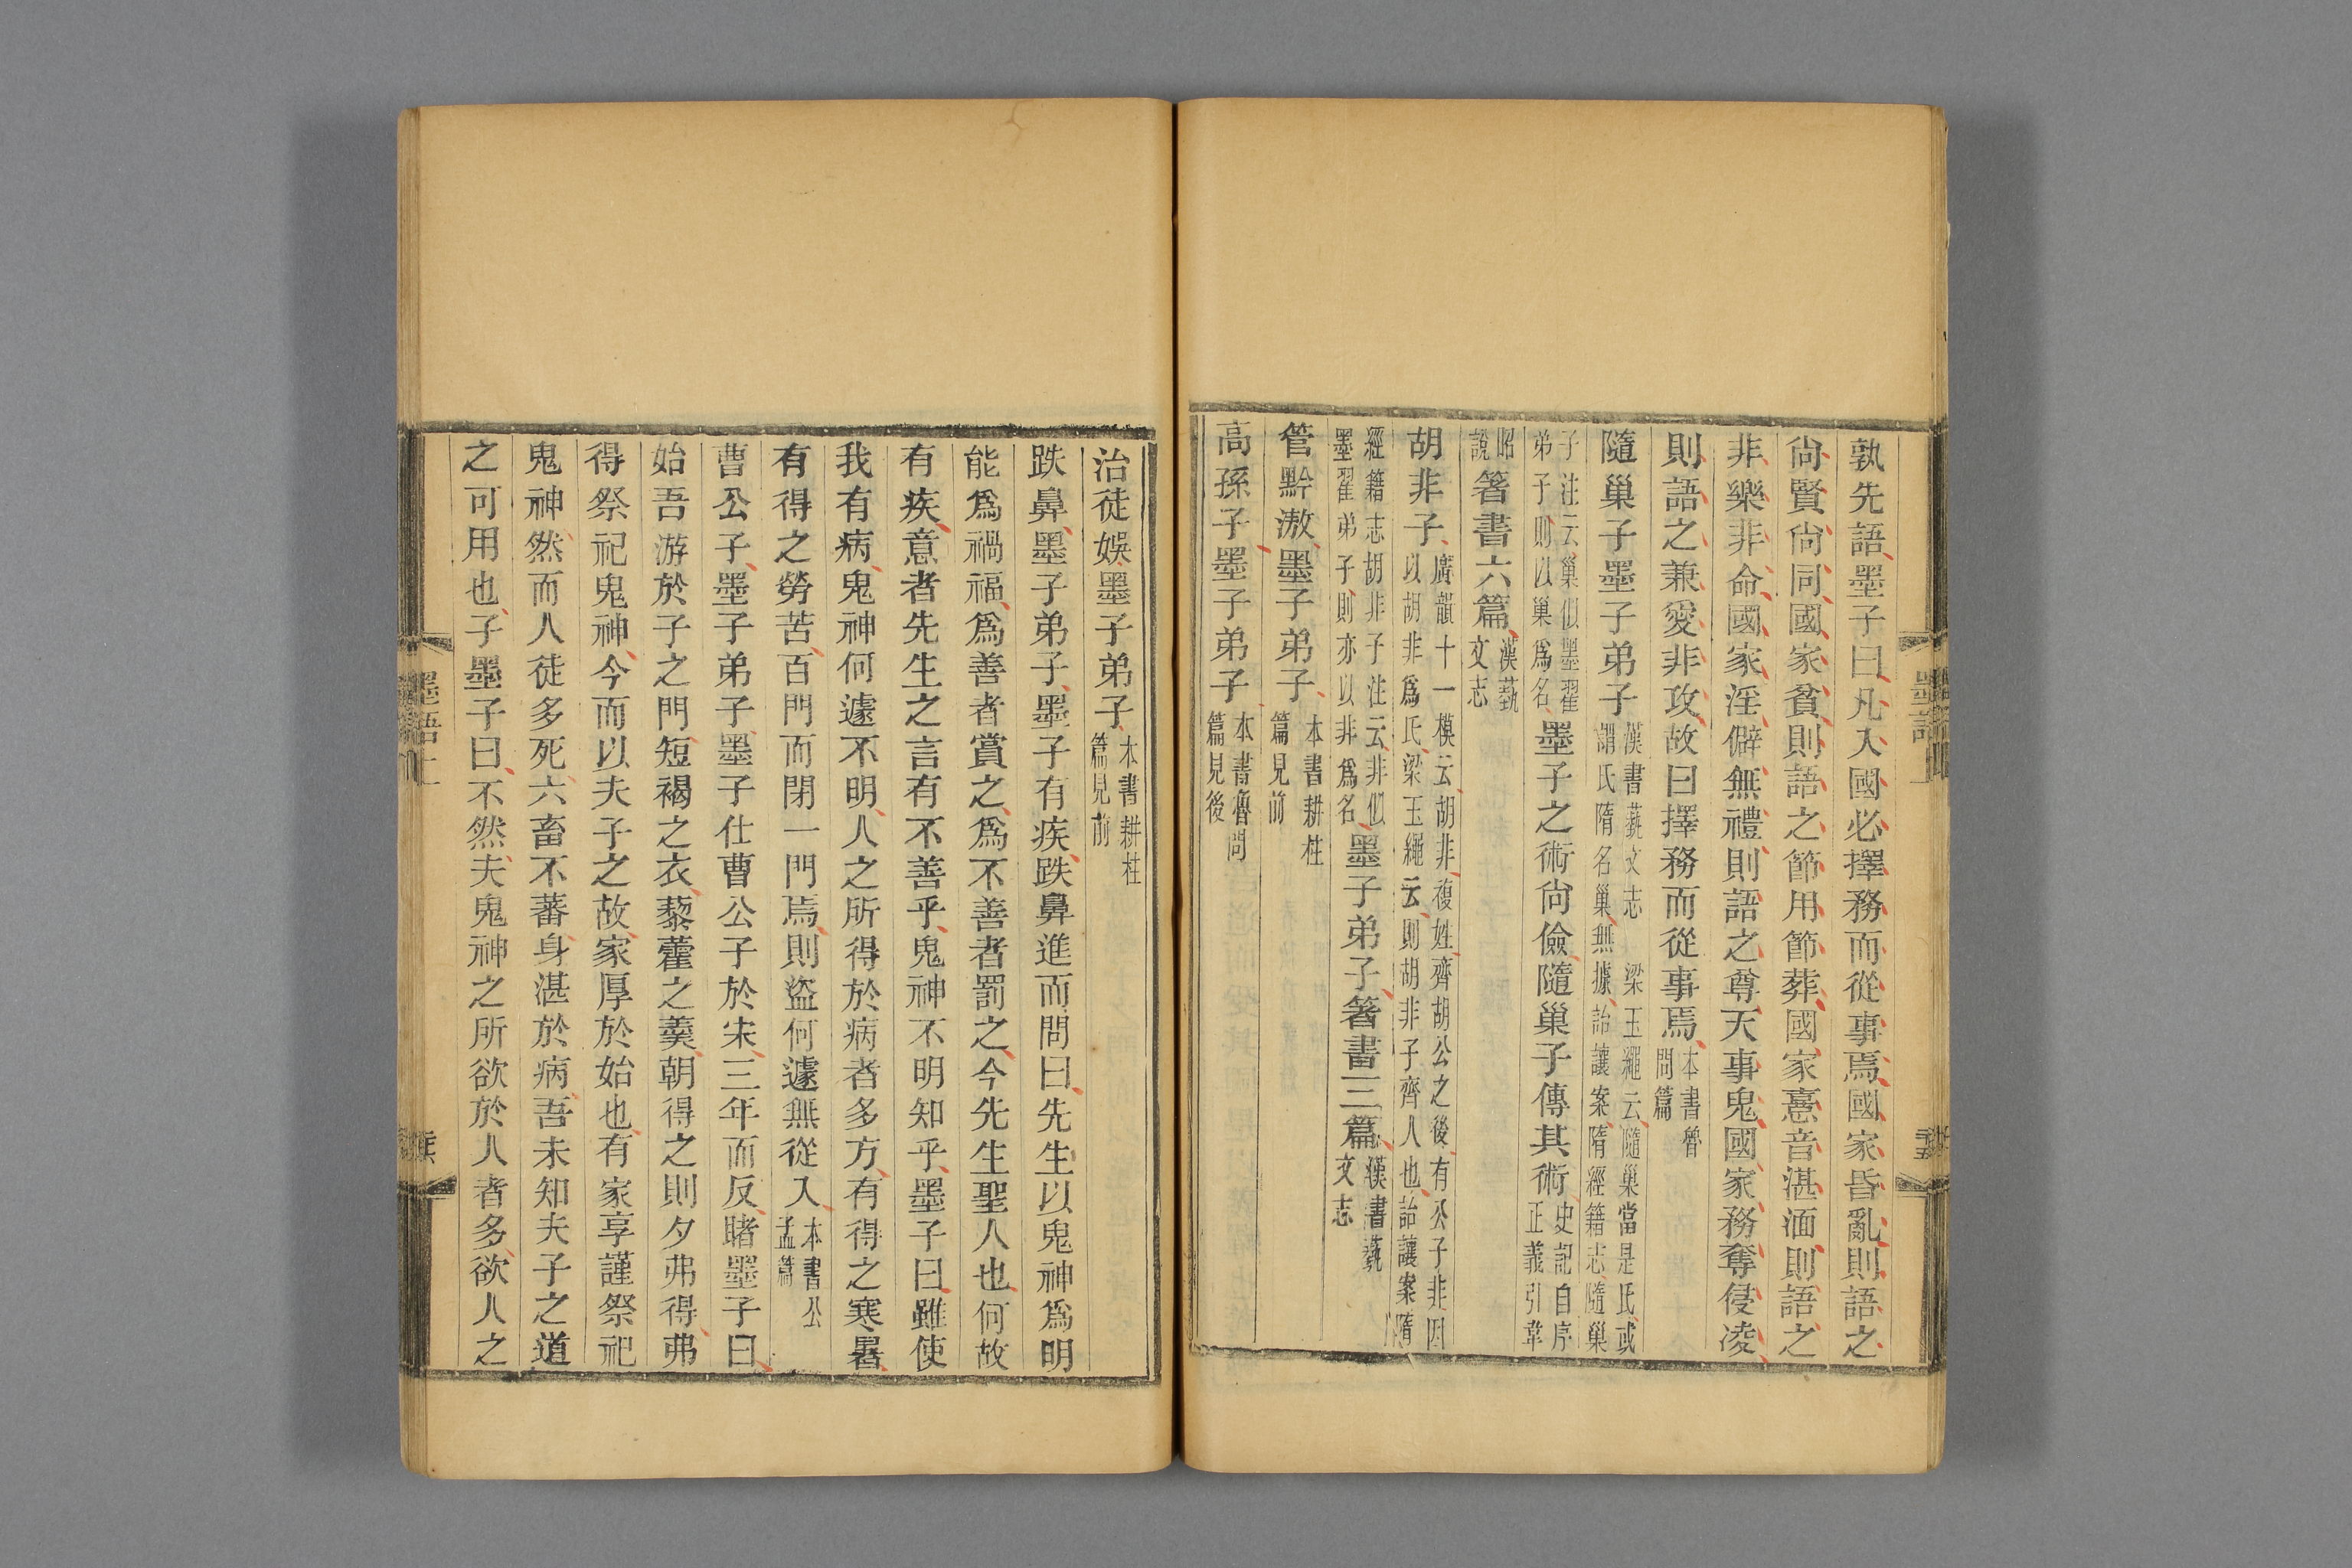 孰先語墨子曰凡入國必擇務而從事焉國家昏亂則語之
尙賢尙同國家貧則語之節用節葬國家憙音湛湎則語之
非樂非命國家淫僻無禮則語之尊天事鬼國家務奪侵凌
則語之兼愛非攻故曰擇務而從事焉本書魯問篇
隨巢子墨子弟子漢書藝文志 梁玉繩云隨巢當是氏或謂氏隋名巢無據詒讓案隋經籍志隨巢
子注云巢似墨翟弟子則以巢爲名墨子之術尙儉隨巢子傳其術史記自序正義引韋
昭說箸書六篇漢藝文志
胡非子廣韻十一模云胡非複姓齊胡公之後有公子非因以胡非爲氏梁玉繩云則胡非子齊人也詒讓案隋
經籍志胡非子注云非似墨翟弟子則亦以非爲名墨子弟子箸書三篇漢書藝文志
管黔滶墨子弟子本書耕柱篇見前
高孫子墨子弟子本書魯問篇見後
治徒娛墨子弟子本書耕柱篇見前
跌鼻墨子弟子墨子有疾跌鼻進而問曰先生以鬼神爲明
能爲禍福爲善者賞之爲不善者罰之今先生聖人也何故
有疾意者先生之言有不善乎鬼神不明知乎墨子曰雖使
我有病鬼神何遽不明人之所得於病者多方有得之寒暑
有得之勞苦百門而閉一門焉則盜何遽無從入本書公孟篇
曹公子墨子弟子墨子仕曹公子於宋三年而反睹墨子曰
始吾游於子之門短褐之衣藜藿之羹朝得之則夕弗得弗
得祭祀鬼神今而以夫子之故家厚於始也有家享謹祭祀
鬼神然而人徒多死六畜不蕃身湛於病吾未知夫子之道
之可用也子墨子曰不然夫鬼神之所欲於人者多欲人之
墨語上